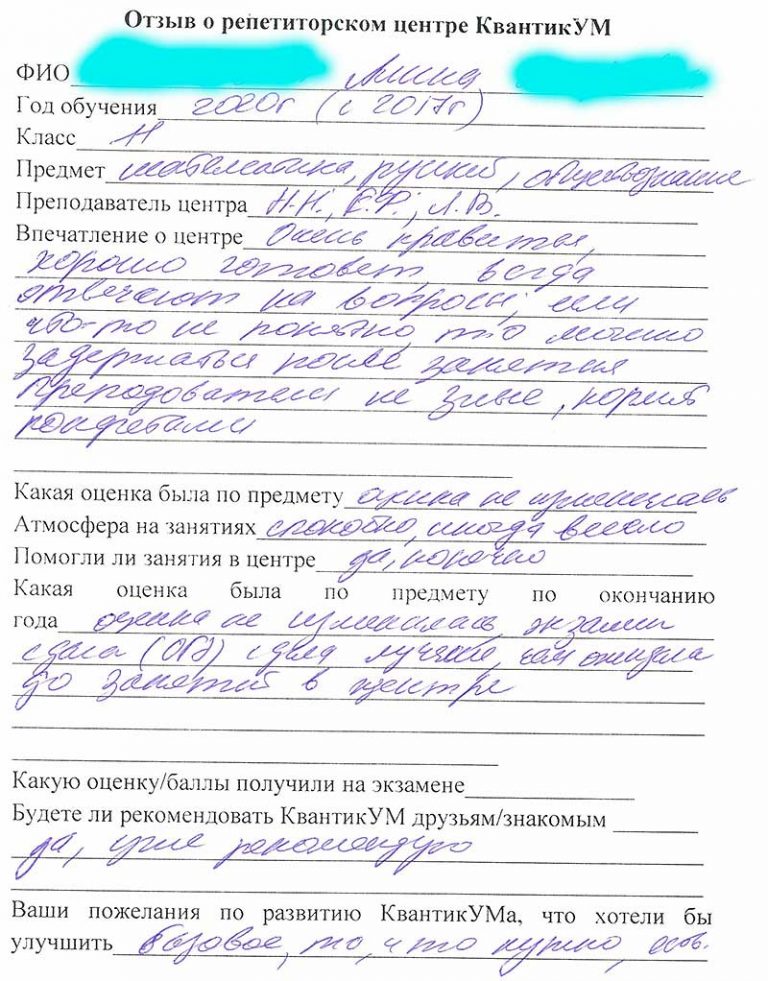 Отзыв о репетиторском центре КвантикУМ
ФИО Алина
Год обучения 2020г (с 2017г)
Класс 11
Предмет математика, русский, обществознание
Преподаватель центра Н.Н., Е.Ф., Л.В.
Впечатление о центре Очень нравится,
хорошо готовят, всегда
отвечают на вопросы, если
что-то не понятно, то можно
задержаться после занятия
преподователи не злые, кормят
конфетами
Какая оценка была по предмету оценка не изменилась
Атмосфера на занятиях спокойно, иногда весело
Помогли ли занятия в центре да, конечно
Какая оценка была по предмету по окончанию
года оценка не изменилась, экзамен
сдала (ОГЭ) сдала лучше, чем ожидала
до занятий в центре
Какую оценку/баллы получили на экзамене
Будете ли рекомендовать КвантикУМ друзьям/знакомым
да, уже рекомендую
Ваши пожелания по развитию КвантикУМа, что хотели бы
улучшить Базовое, то, что нужно, есть.